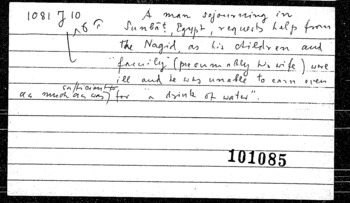 1081 J 10
A man sojourning in
Sunbāṭ, Egypt, requests help from
the Nagid, as his children and
"family" (presumably his wife) were
ill and he was unable to earn even
as much as was sufficient for "a drink of water".
101085